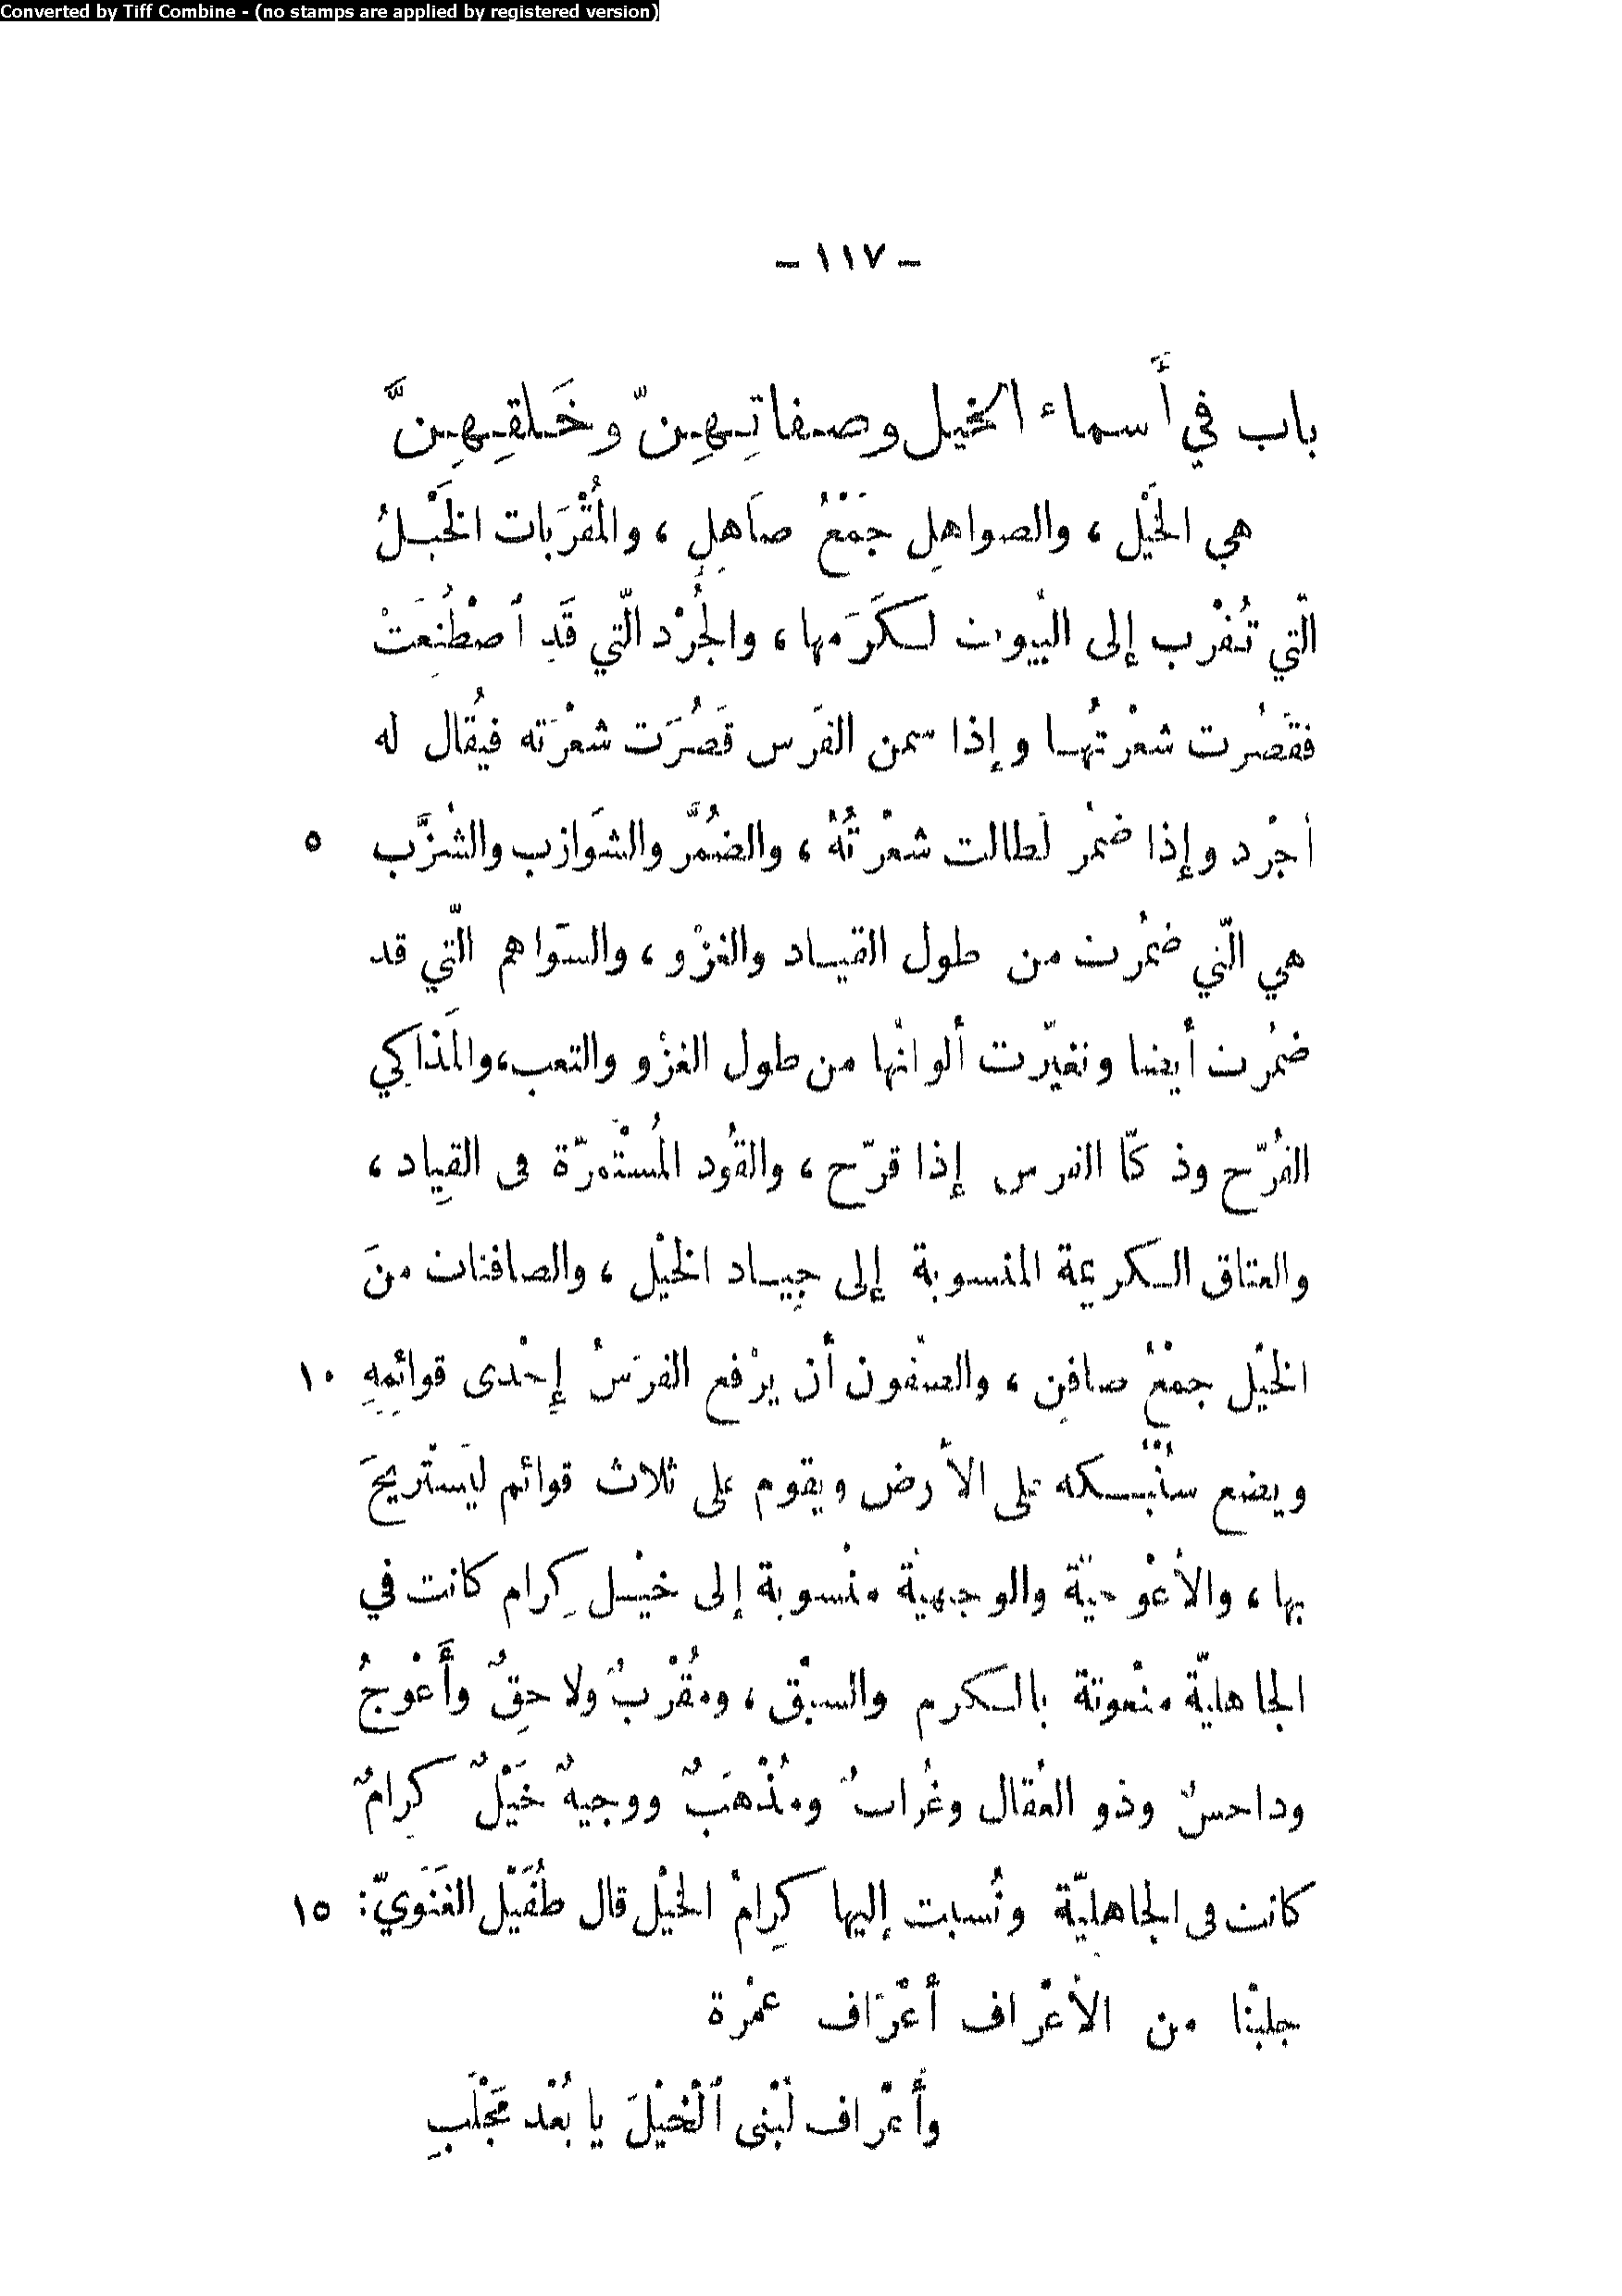 Converted by Tiff Combine - (no stamps are applied by registered version)
- ١١٧ -
باب في أَسماء الخيل وصفاتِهِنّ وخَلقِهِنَّ
هي الخَيْل ، والصواهِل جَمْعُ صاَهِلٍ ، والمُقْرَبات الخَيْلُ
الّتي تُقْرب إلى البُيوت لكَرَمها ، والجُرْد الّتي قَدِ ٱصْطُنِعَتْ
فقَصُرت شعْرتُها وإذا سمن الفَرس قَصُرَت شعْرَته فيُقال له
أجْرد وإذا ضمُر لَطالت شعْرتُهُ ، والضُمَّر والشوَازب والشُزَّب ٥
هي الّتي ضمُرت من طول القياد والغزْو ، والسوَاهم الّتي قد
ضمُرت أيضا وتغيّرت ألوانُها من طول الغزْو والتعب، والمَذاكِي
القُرّح وذكّا الفرس إذا قرّح ، والقُود المُسْتْمرّة فى القيِاد ،
والعتاق الكريمة المنسوبة إلى جِياد الخيْل ، والصافنات منَ
الخيْل جمْعُ صافِن ، والصفُون أن يرْفع الفرَسُ إِحْدى قوائمِهِ ١٠
ويضع سُنْبُكه على الأَرض ويقوم على ثلاث قوائم ليَستْريحَ
بها ، والأعْوجيّة والوجيهيّة منْسوبة إلى خيْل كِرام كانت في
الجاهليّة منْعوتة بالكرم والسبْق ، ومُقْربٌ ولاحِقٌ وأَعْوجُ
وداحسٌ وذو العُقال وغُرابٌ ومُذْهَبٌ ووجيهٌ خَيْلٌ كِرامٌ
كانت فى الجاهليّة ونُسبت إليها كِرامُ الخيْل قال طُفَيْل الغَنَويّ: ١٥
جلبْنا من الأعْراف أعْرَاف غمْرة
وأَعْراف لُبْنى ٱلْخيْلَ يا بُعْد مَجْلَبِ